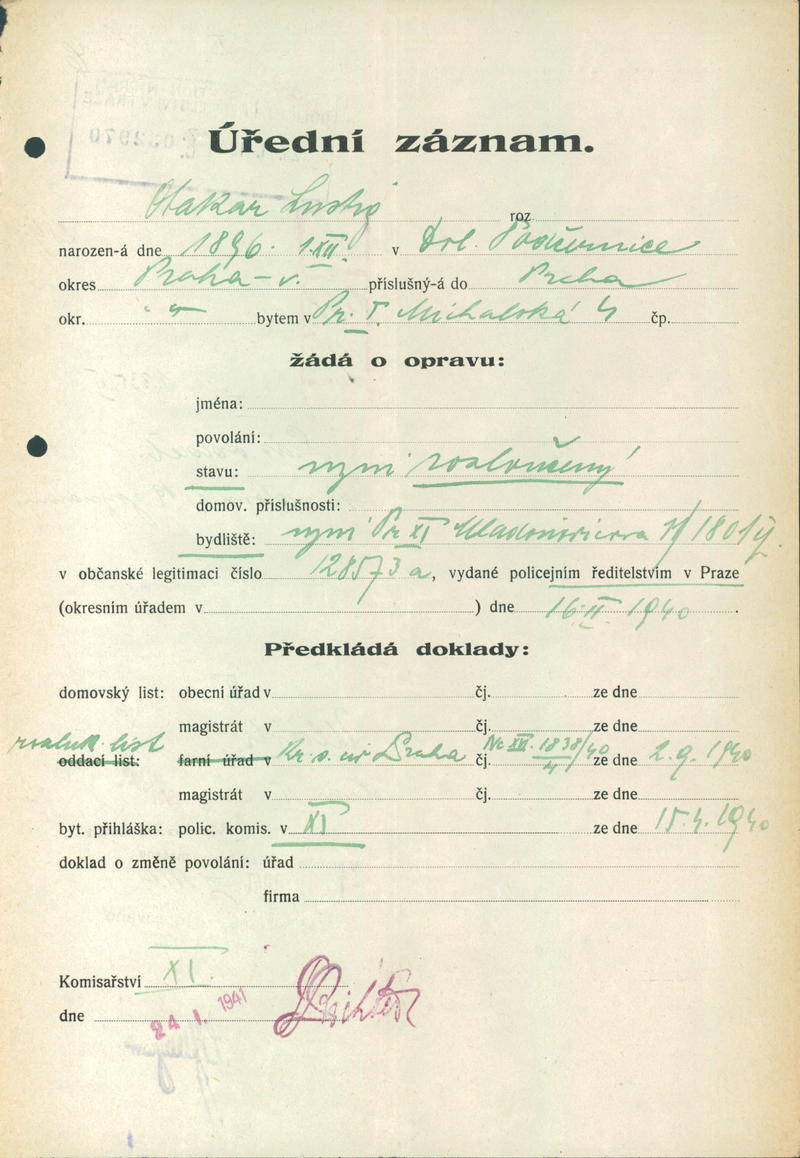 Úřední záznam.
Otakar Lustig roz.
narozen-á dne 1896. 1.XII. v Dol. Počernice
okres Praha - v. příslušný-á do Praha
okr. " bytem v Pr. I, Michalská 4 čp.
žádá o opravu:
jména:
povolání:
stavu: nyní rozloučený
domov. příslušnosti:
bydliště: nyní Pr XI 1801
v občanské legitimaci číslo 128573 a, vydané policejním ředitelstvím v Praze
(okresním úřadem v ) dne 16.II. 1940.
Předkládá doklady:
domovský list: obecní úřad v čj. ze dne
magistrát v čj. ze dne
rozluk. list
oddací list: farní úřad v Kr. s. Praha čj. Nc XII. 1838/40 ze dne 2.9.1940
4
magistrát v čj. ze dne
byt. přihláška: polic. komis. v XI ze dne 15.4.1940
doklad o změně povolání: úřad
firma
Komisařství XI.
dne 24 I. 1941